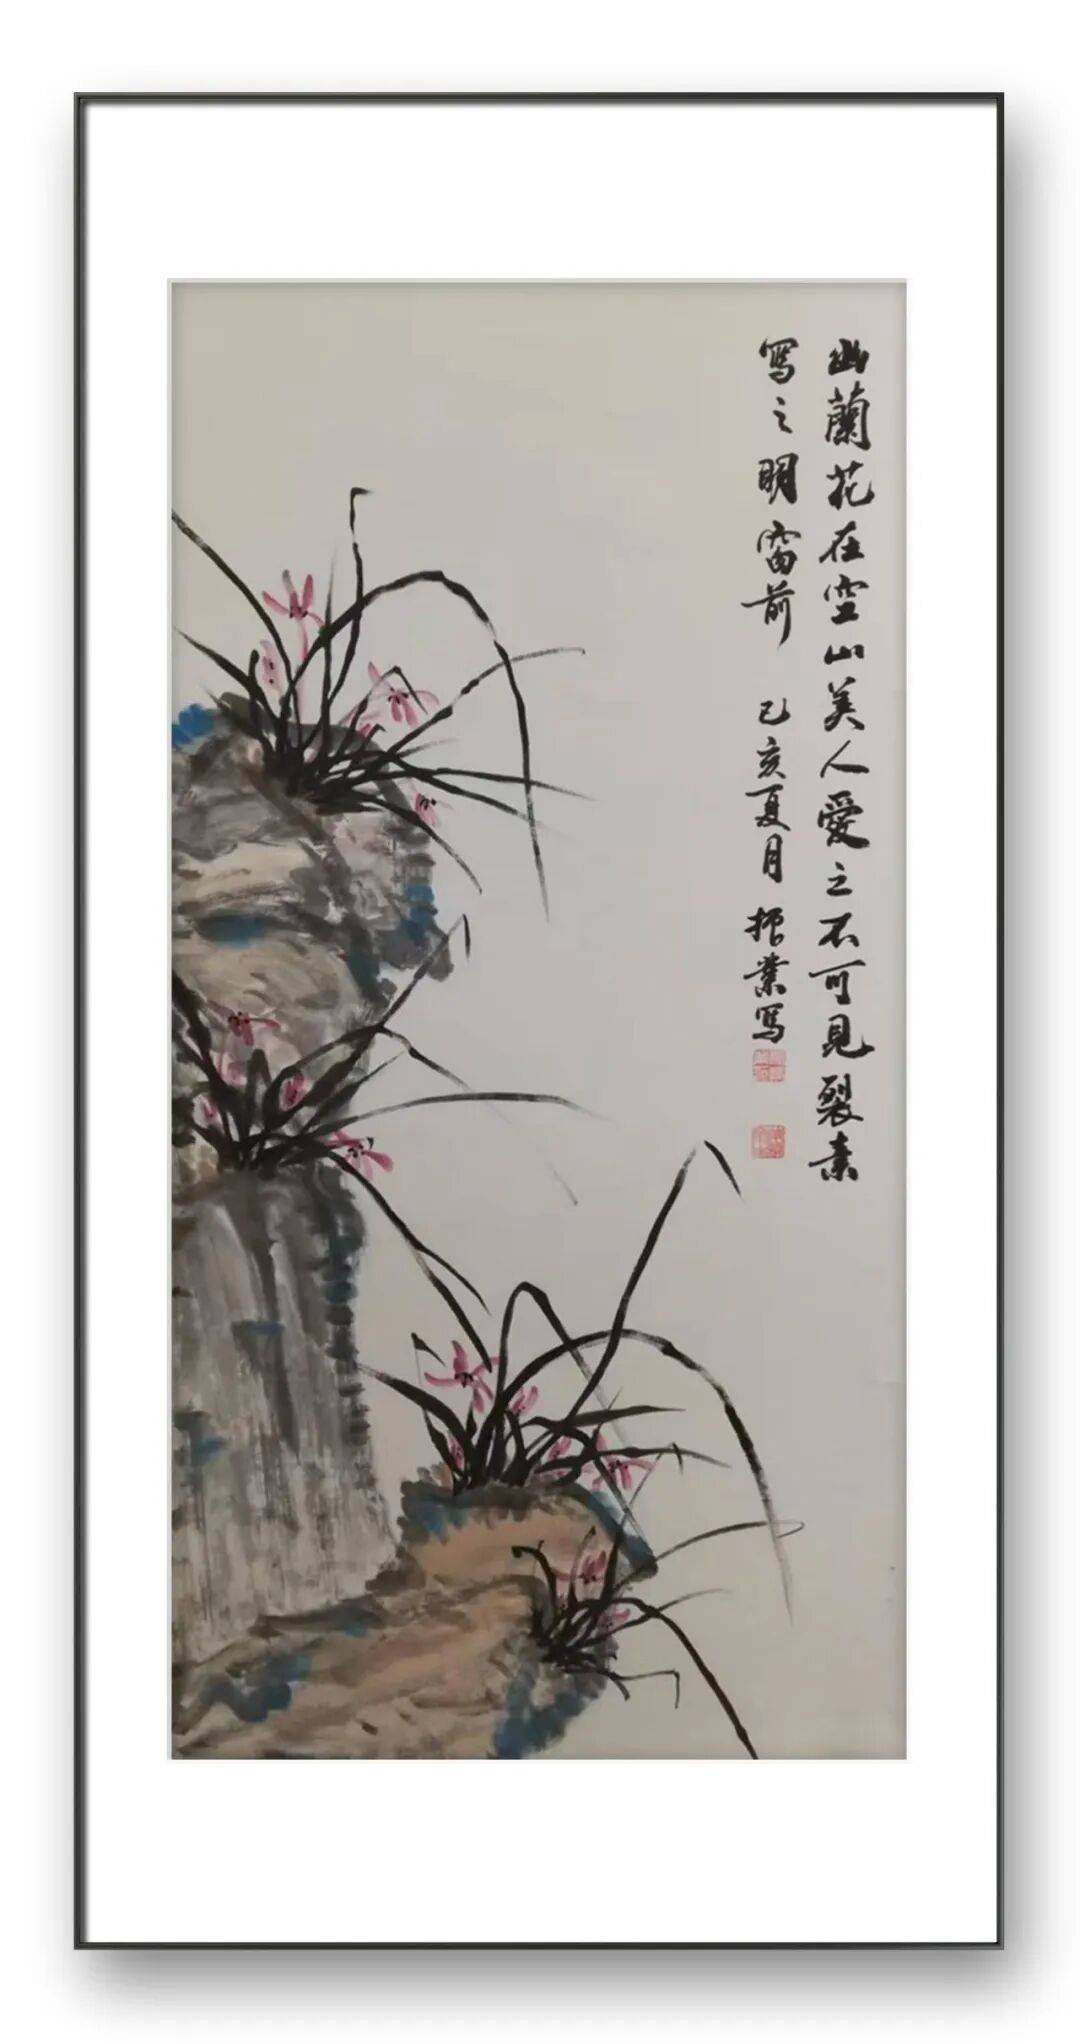 幽蘭花在空山美人愛之不可見裂素
寫之明窗前 己亥夏月 振業寫